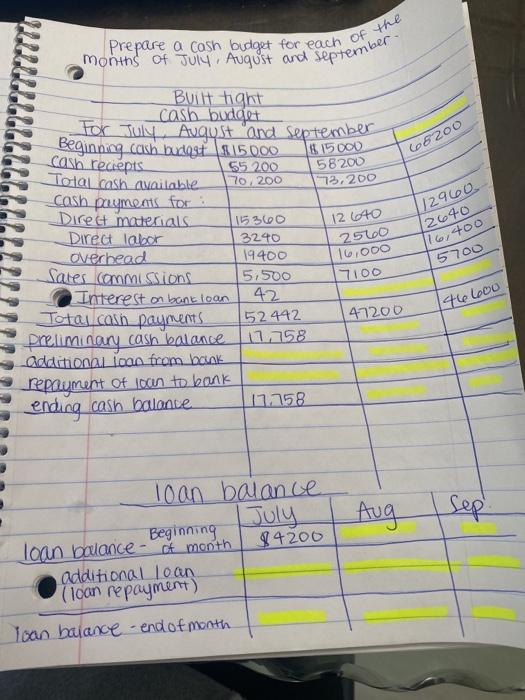 Prepare a cash budget for each of the
months of July, August and september.
Built tight
cash budget
For July, August and september
Beginning cash budget $15000 $15000
cash reciepts 55 200 58200 68200
Total cash available 70,200 73,200
cash payments for :
Direct materials 15360 12 640 12960
Direct labor 3240 2560 2640
overhead 19400 16,000 16,400
Sales commissions 5,500 7100 5700
Interest on bank loan 42
Total cash payments 52 442 47200 46600
preliminary cash balance 17,758
additional loan from bank
repayment of loan to bank
ending cash balance 17.758
loan balance
July Aug Sep.
loan balance - Beginning of month $4200
additional loan
(loan repayment)
loan balance - end of month